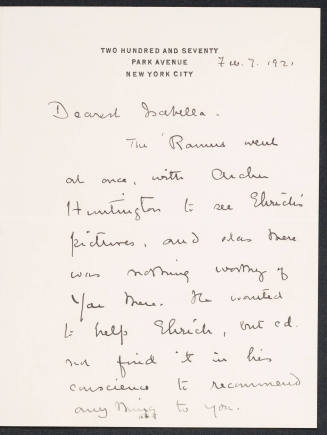 TWO HUNDRED AND SEVENTY
PARK AVENUE
NEW YORK CITY
Feb. 7. 1921
Dearest Isabella.
The Ramus went
at once, with Archer
Huntington to see Ehrich's
pictures, and alas there
was nothing worthy of
You there. He wanted
to help Ehrich, but cd.
not find it in his
conscience to recommend
anything to you.